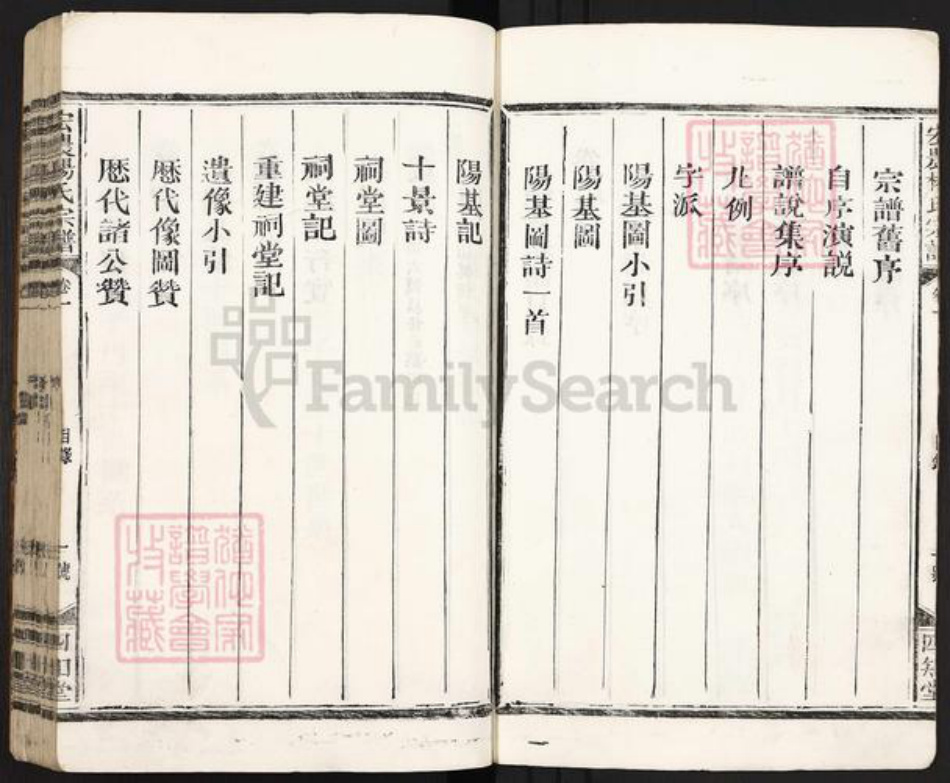 宗譜舊序
自序演說
譜說集序
凡例
字派
陽基圖小引
陽基圖
陽基圖詩一首
陽基記
十景詩
祠堂圖
祠堂記
重建祠堂記
遺像小引
歷代像圖贊
歷代諸公贊
楊氏宗譜
卷一
目錄
一號
四知堂
四知堂
FamilySearch